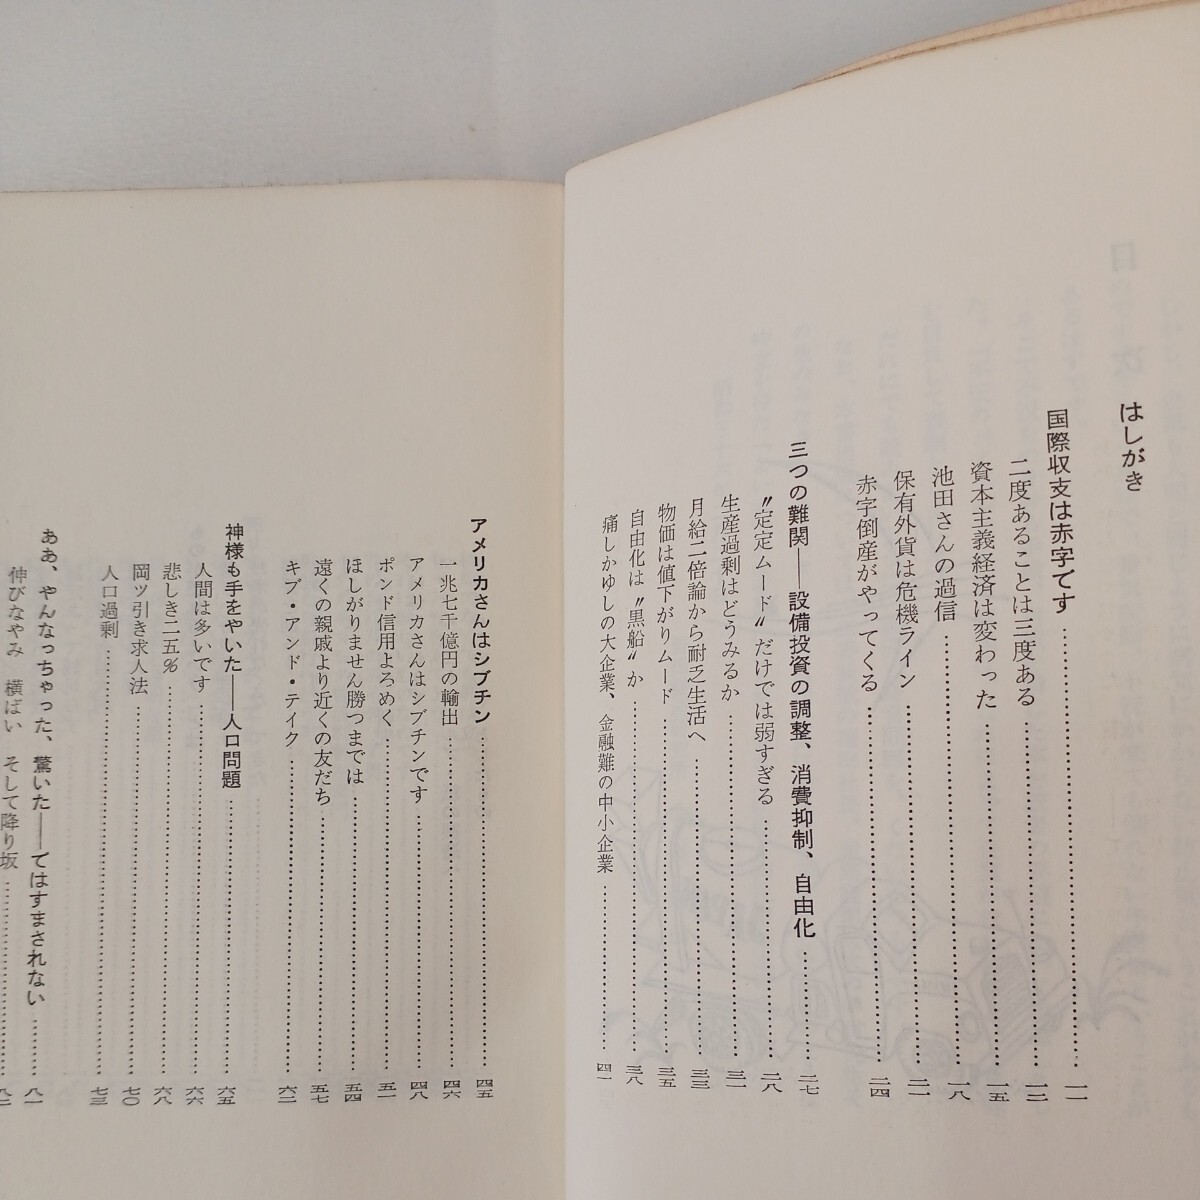 はしがき
国際収支は赤字です……………一一
二度あることは三度ある……………一三
資本主義経済は変わった……………一五
池田さんの過信……………一八
保有外貨は危機ライン……………二一
赤字倒産がやってくる……………二四
三つの難関――設備投資の調整、消費抑制、自由化……………二七
〝定定ムード〟だけでは弱すぎる……………二八
生産過剰はどうみるか……………三一
月給二倍論から耐乏生活へ……………三三
物価は値下がりムード……………三五
自由化は〝黒船〟か……………三八
痛しかゆしの大企業、金融難の中小企業……………四一
アメリカさんはシブチン……………四五
一兆七千億円の輸出……………四六
アメリカさんはシブチンです……………四八
ポンド信用よろめく……………五一
ほしがりません勝つまでは……………五四
遠くの親戚より近くの友だち……………五七
ギブ・アンド・テイク……………六二
神様も手をやいた――人口問題……………六五
人間は多いです……………六六
悲しき二五％……………六八
岡ッ引き求人法……………七〇
人口過剰……………七三
ああ、やんなっちゃった、驚いた――てはすまされない……………八一
伸びなやみ　横ばい　そして降り坂……………八二